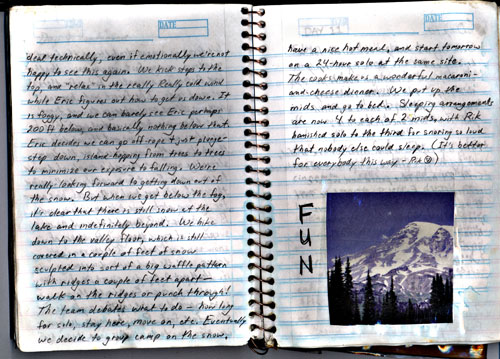 DATE
deal technically, even if emotionally we're not
happy to see this again. We kick steps to the
top, and "relax" in the really Really cold wind
while Eric figures out how to get us down. It
is foggy, and we can barely see Eric perhaps
200ft below, and basically nothing below that.
Eric decides we can go off-rope + just plunge-
step down, island-hopping from trees to trees
to minimize our exposure to falling. We're
really looking forward to getting down out of
the snow. But when we get below the fog,
it's clear that there is still snow at the
lake and indefinitely beyond. We hike
down to the valley floor, which is still
covered in a couple of feet of snow
sculpted into sort of a big waffle pattern
with ridges a couple of feet apart -
walk on the ridges or punch through!
The team debates what to do - how long
for solo, stay here, move on, etc. Eventually
we decide to group camp on the snow,
DATE
have a nice hot meal, and start tomorrow
on a 24-hour solo at the same site.
The cooks make us a wonderful macaroni-
and-cheese dinner. We put up the
mids and go to bed. Sleeping arrangements
are now 4 to each of 2 mids, with Rik
banished solo to the third for snoring so loud
that nobody else could sleep. (It's better
for everybody this way - Rik ☺)
F
U
N